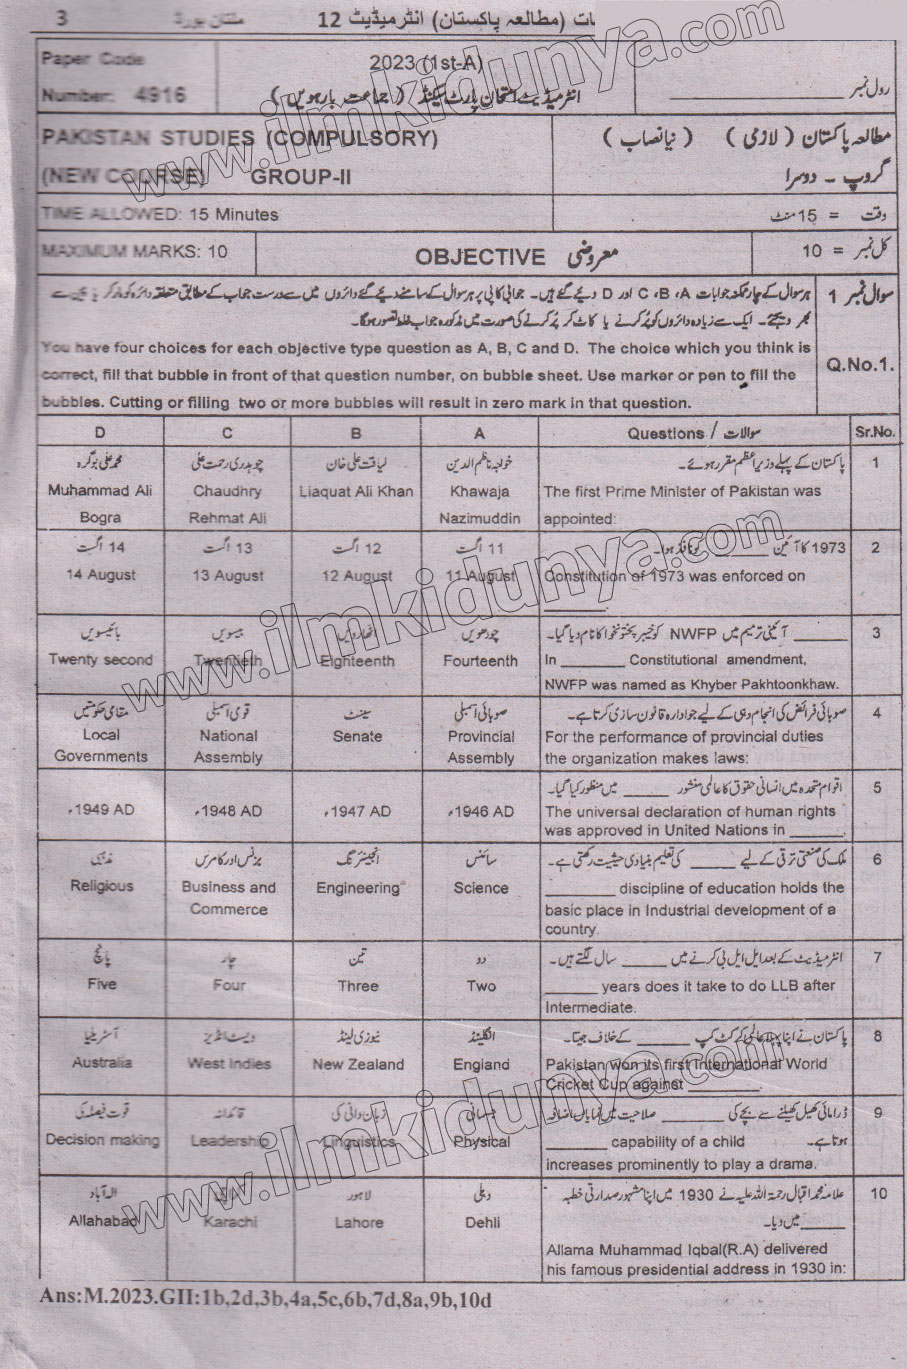 3 ملتان بورڈ (مطالعہ پاکستان) انٹرمیڈیٹ 12
Paper Code
Number: 4916
2023 (1st-A)
انٹرمیڈیٹ امتحان پارٹ سیکنڈ ( جماعت بارہویں )
رول نمبر
PAKISTAN STUDIES (COMPULSORY)
(NEW COURSE) GROUP-II
مطالعہ پاکستان ( لازمی ) ( نیا نصاب )
گروپ ۔ دوسرا
TIME ALLOWED: 15 Minutes
وقت = 15 منٹ
MAXIMUM MARKS: 10
OBJECTIVE معروضی
کل نمبر = 10
سوال نمبر 1
ہر سوال کے چار ممکنہ جوابات A، B، C اور D دیئے گئے ہیں۔ جوابی کاپی پر ہر سوال کے سامنے دیئے گئے دائروں میں سے درست جواب کے مطابق متعلقہ دائرہ کو مارکر یا پین سے
بھر دیجئے۔ ایک سے زیادہ دائروں کو پُر کرنے یا کاٹ کر پُر کرنے کی صورت میں مذکورہ جواب غلط تصور ہوگا۔
Q.No.1.
You have four choices for each objective type question as A, B, C and D. The choice which you think is
correct, fill that bubble in front of that question number, on bubble sheet. Use marker or pen to fill the
bubbles. Cutting or filling two or more bubbles will result in zero mark in that question.
D C B A Questions / سوالات Sr.No.
محمد علی بوگرہ چوہدری رحمت علی لیاقت علی خان خواجہ ناظم الدین پاکستان کے پہلے وزیراعظم مقرر ہوئے۔ 1
Muhammad Ali Chaudhry Liaquat Ali Khan Khawaja The first Prime Minister of Pakistan was
Bogra Rehmat Ali Nazimuddin appointed:
14 اگست 13 اگست 12 اگست 11 اگست 1973 کا آئین ______ کو نافذ ہوا۔ 2
14 August 13 August 12 August 11 August Constitution of 1973 was enforced on
______.
بائیسویں بیسویں اٹھارویں چودھویں ______ آئینی ترمیم میں NWFP کو خیبر پختونخوا کا نام دیا گیا۔ 3
Twenty second Twentieth Eighteenth Fourteenth In ______ Constitutional amendment,
NWFP was named as Khyber Pakhtoonkhaw.
مقامی حکومتیں قومی اسمبلی سینٹ صوبائی اسمبلی صوبائی فرائض کی انجام دہی کے لیے جو ادارہ قانون سازی کرتا ہے۔ 4
Local National Senate Provincial For the performance of provincial duties
Governments Assembly Assembly the organization makes laws:
اقوام متحدہ میں انسانی حقوق کا عالمی منشور ______ میں منظور کیا گیا۔ 5
1949 AD، 1948 AD، 1947 AD، 1946 AD، The universal declaration of human rights
was approved in United Nations in ______.
مذہبی بزنس اور کامرس انجینئرنگ سائنس ملک کی صنعتی ترقی کے لیے ______ کی تعلیم بنیادی حیثیت رکھتی ہے۔ 6
Religious Business and Engineering Science ______ discipline of education holds the
Commerce basic place in Industrial development of a
country.
پانچ چار تین دو انٹرمیڈیٹ کے بعد ایل ایل بی کرنے میں ______ سال لگتے ہیں۔ 7
Five Four Three Two ______ years does it take to do LLB after
Intermediate.
آسٹریلیا ویسٹ انڈیز نیوزی لینڈ انگلینڈ پاکستان نے اپنا پہلا عالمی کرکٹ کپ ______ کے خلاف جیتا۔ 8
Australia West Indies New Zealand England Pakistan won its first International World
Cricket Cup against ______.
قوت فیصلہ کی قائدانہ زبان دانی کی جسمانی ڈرامائی کھیل کھیلنے سے بچے کی ______ صلاحیت میں نمایاں اضافہ 9
ہوتا ہے۔
Decision making Leadership Linguistics Physical ______ capability of a child
increases prominently to play a drama.
الہ آباد کراچی لاہور دہلی علامہ محمد اقبال رحمۃ اللہ علیہ نے 1930 میں اپنا مشہور صدارتی خطبہ 10
______ میں دیا۔
Allahabad Karachi Lahore Dehli Allama Muhammad Iqbal(R.A) delivered
his famous presidential address in 1930 in:
Ans:M.2023.GII:1b,2d,3b,4a,5c,6b,7d,8a,9b,10d
www.ilmkidunya.com
www.ilmkidunya.com
www.ilmkidunya.com